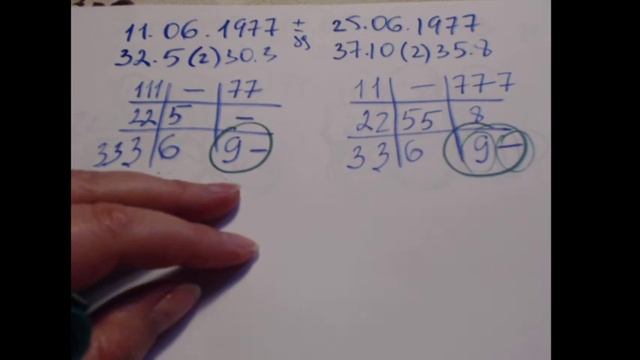 11.06.1977 ± 25.06.1977
32.5(2)30.3 37.10(2)35.8
111 — 77 11 — 777
22 5 — 22 55 8
333 6 9 — 33 6 9 —